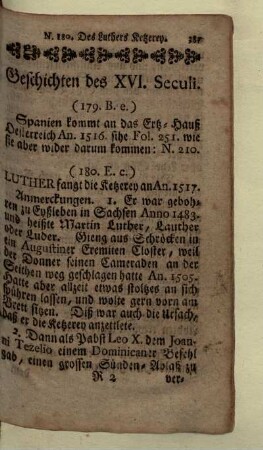 N. 180. Des Luthers Ketzerey. 387
Geschichten des XVI. Seculi.
(179. B. e.)
Spanien kommt an das Ertz-Hauß
Oesterreich An. 1516. sihe Fol. 251. wie
sie aber wider darum kommen: N. 210.
(180. E. c.)
LUTHER fangt die Ketzerey an An. 1517.
Anmerckungen. 1. Er war geboh-
ren zu Eyßleben in Sachsen Anno 1483.
und heißte Martin Luther, Lauther
oder Luder. Gieng aus Schröcken in
ein Augustiner Eremiten Closter, weil
der Donner seinen Cameraden an der
Seithen weg geschlagen hatte An. 1505.
Hatte aber allzeit etwas stoltzes an sich
spühren lassen, und wolte gern vorn am
Brett sitzen. Diß war auch die Ursach,
daß er die Ketzerey anzettlete.
2. Dann als Pabst Leo X. dem Joan-
ni Tezelio einem Dominicaner Befehl
gab, einen grossen Sünden-Ablaß zu
R 2 ver-